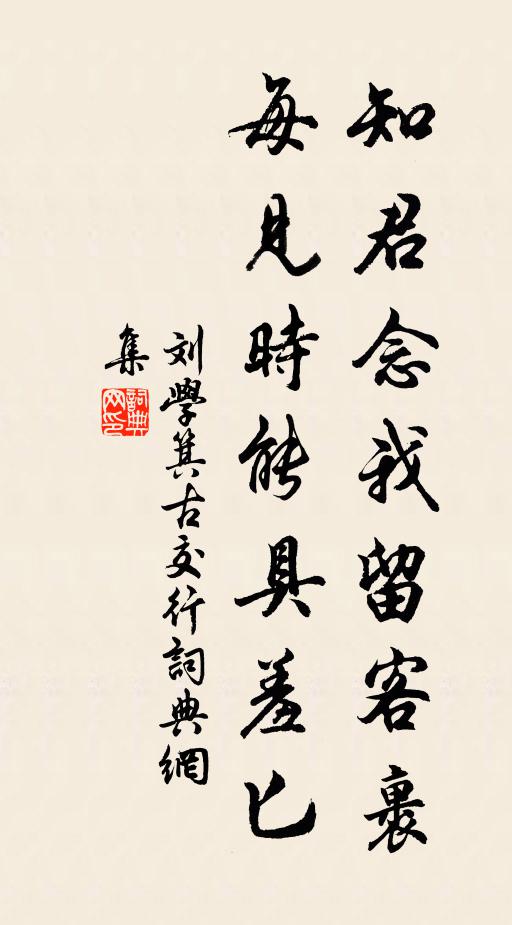 知君念我留客裹
每見時能具羞匕
刘學箕古交行詞典網
集
詞典
网印